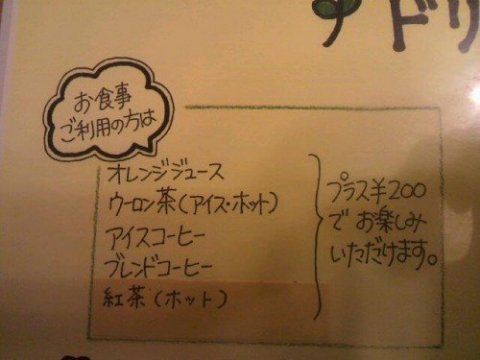 ドリ
お食事
ご利用の方は
オレンジジュース
ウーロン茶(アイス・ホット)
アイスコーヒー
ブレンドコーヒー
紅茶(ホット)
プラス¥200
で お楽しみ
いただけます。